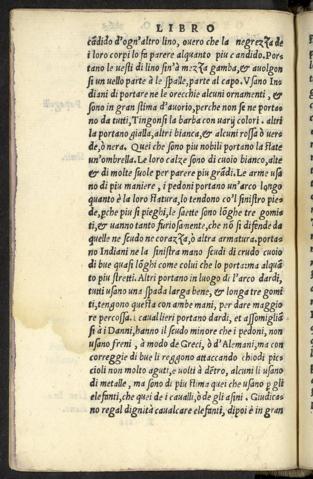 LIBRO
cãdido d'ogn'altro lino, ouero che la negrezza de
i loro corpi lo fa parere alquanto piu candido. Por-
tano le uesti di lino sin'à mezza gamba, & auolgon
si un uello parte à le spalle, parte al capo. Vsano In-
diani di portarne le orecchie alcuni ornamenti, &
sono in gran stima d'auorio, perche non se ne porta-
no da tutti, Tingonsi la barba con uarij colori. altri
la portano gialla, altri bianca, & alcuni rossa ò uer-
de, ò nera. Quei che sono piu nobili portano la state
un'ombrella. Le loro calze sono di cuoio bianco, alte
& di molte suole per parere piu grãdi. Le arme usa-
no di piu maniere, i pedoni portano un'arco lungo
quanto è la loro statura, lo tendono co'l sinistro pie-
de, pche piu si pieghi, le saette sono lõghe tre gomi-
ti, & uanno tanto furiosamente, che nõ si difende da
quelle ne scudo ne corazza, ò altra armatura. porta-
no Indiani ne la sinistra mano scudi di crudo cuoio
di bue quasi lõghi come colui che lo porta: ma alquã
to piu stretti. Altri portano in luogo di l'arco dardi,
tutti usano una spada larga bene, & longa tre gomi
ti, tengono questa con ambe mani, per dare maggio
re percossa. i cauallieri portano dardi, et assomigliã
si à i Danni, hanno il scudo minore che i pedoni, non
usano freni, à modo de Greci, ò d'Alemani, ma con
correggie di bue li reggono attaccando chiodi pic-
cioli non molto aguti, e uolti à dẽtro, alcuni li usano
di metalle, ma sono di piu stima quei che usano p gli
elefanti, che quei de i caualli, ò de gli asini. Giudica-
no regal dignità caualcare elefanti, dipoi è in gran